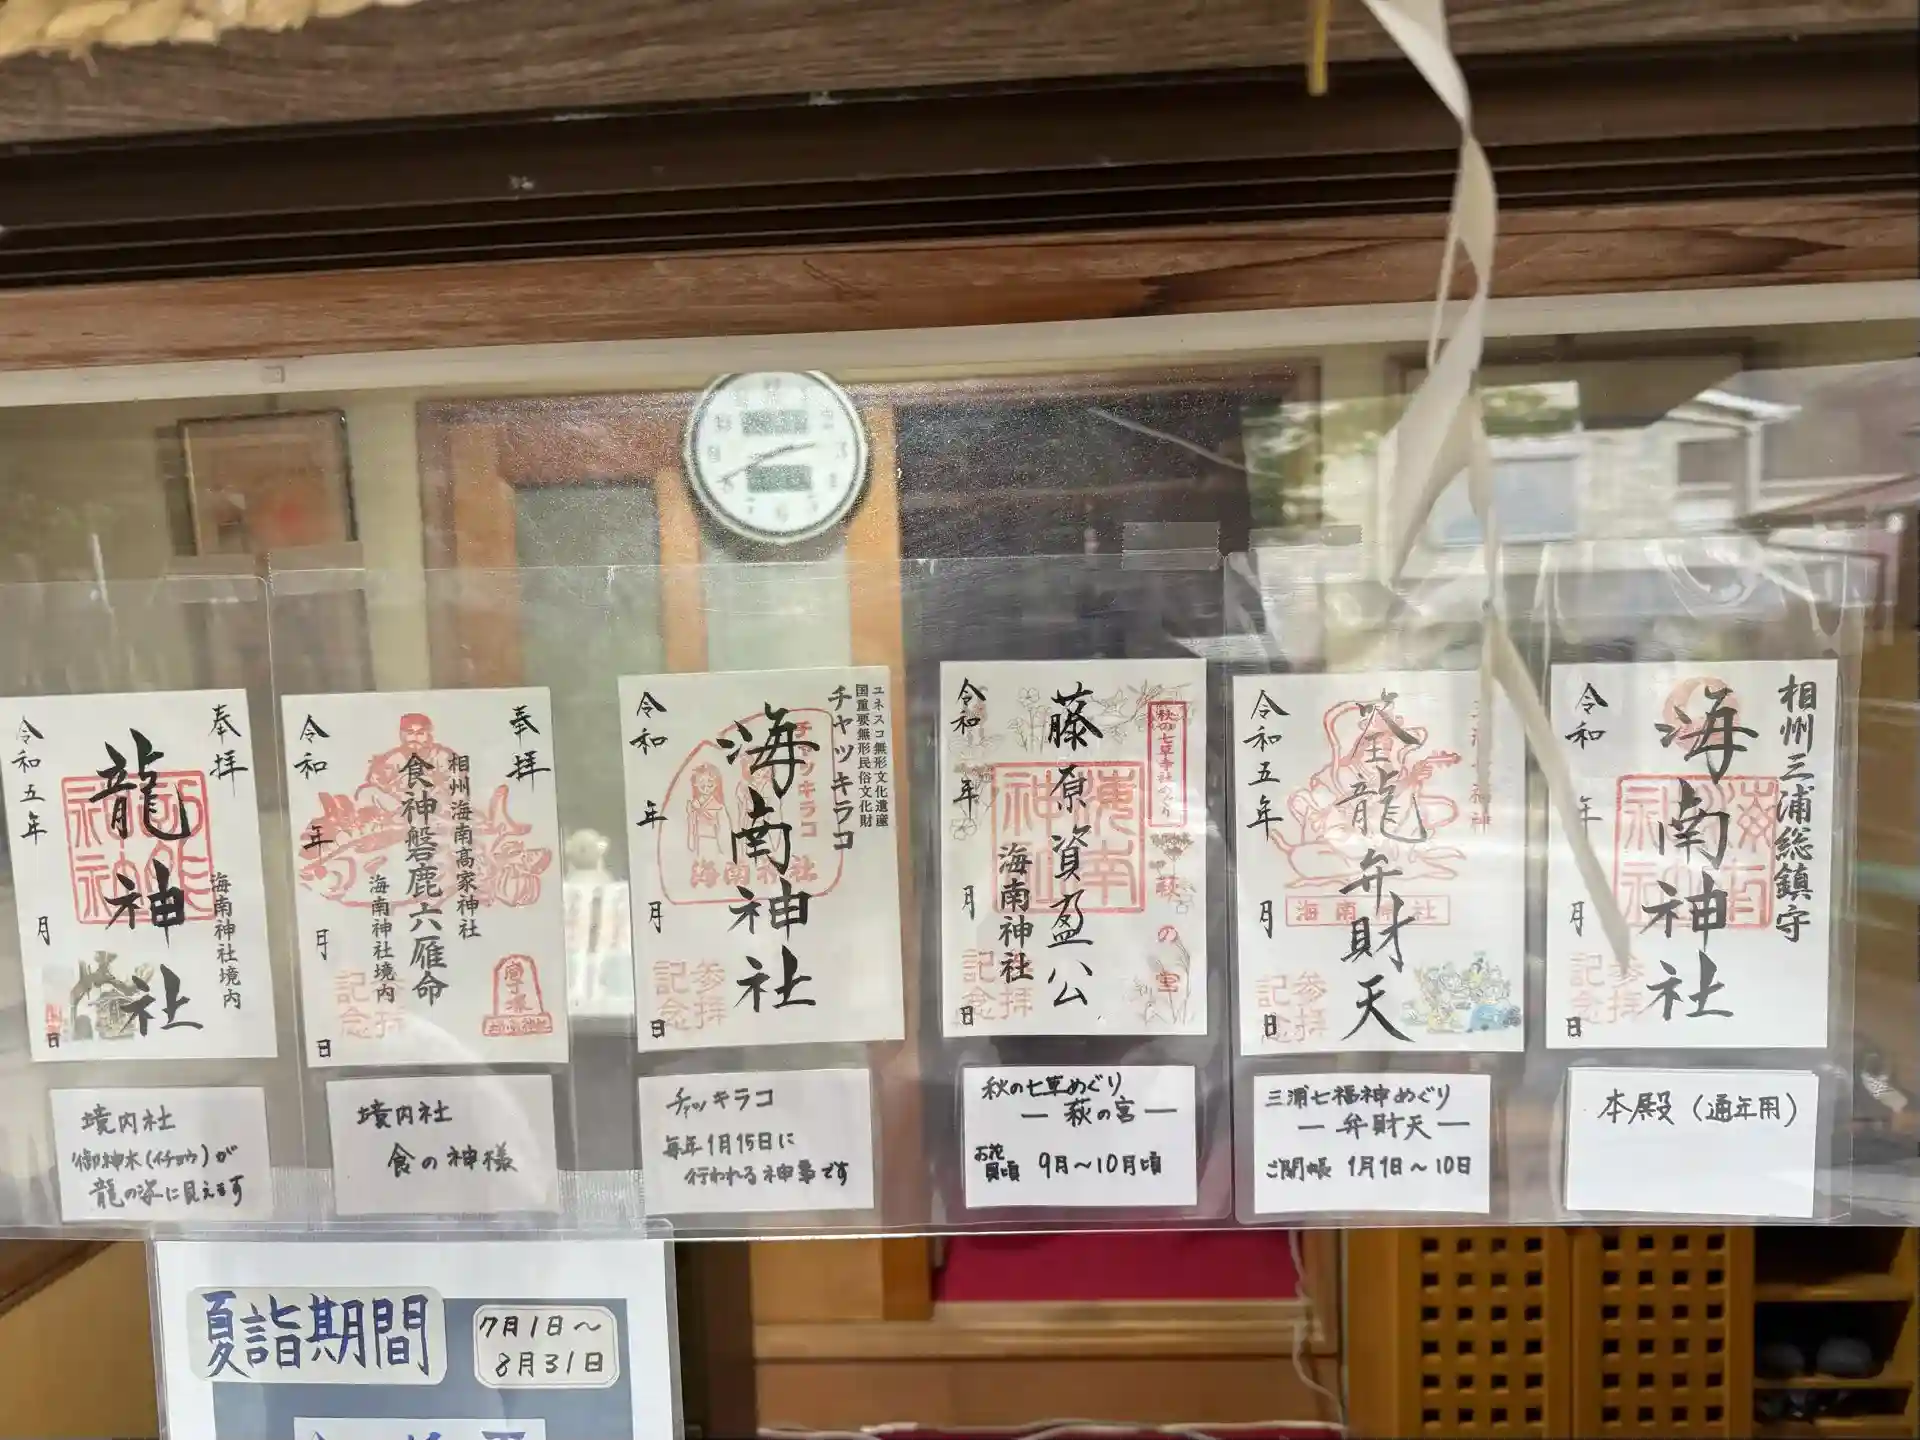 相州三浦総鎮守
海南神社
令和
年
月
日
参拝
記念
本殿（通年用）
龍弁財天
令和五年
月
日
海南神社
参拝
記念
三浦七福神めぐり
― 弁財天 ―
ご開帳 1月1日～10日
秋の七草寺社めぐり
萩の宮
藤原資盈公
海南神社
令和
年
月
日
参拝
記念
秋の七草めぐり
― 萩の宮 ―
お花見頃 9月～10月頃
ユネスコ無形文化遺産
国重要無形民俗文化財
チャッキラコ
チャッキラコ
海南神社
海南神社
令和
年
月
日
参拝
記念
チャッキラコ
毎年1月15日に
行われる神事です
奉拝
相州海南高家神社
食神磐鹿六雁命
海南神社境内
令和
年
月
日
参拝
記念
境内社
食の神様
奉拝
龍神社
海南神社境内
令和五年
月
日
境内社
御神木(イチョウ)が
龍の姿に見えます
夏詣期間
7月1日～
8月31日